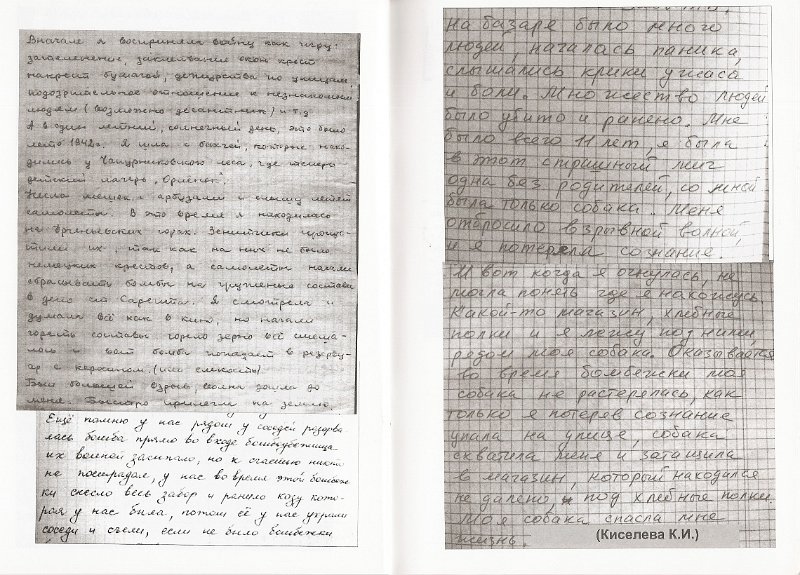 Вначале я восприняла войну как игру:
затемнение, заклеивание окон крест
накрест бумагой, дежурства по улицам
подозрительное отношение к незнакомым
людям (возможно десантник) и т.д
А в один летний, солнечный день, это было
лето 1942г. Я шла с бахчей, которые нахо-
дились у Чапурниковского леса, где теперь
детский лагерь "Орлёнок".
Несла мешок с арбузами и слышу летят
самолеты. В это время я находилась
на Ергенинских горах. Зенитчики пропус-
тили их, так как на них не было
немецких крестов, а самолеты начали
сбрасывать бомбы на груженные состава
в депо ст Сарепта. Я смотрела и
думала всё как в кино, но начали
гореть составы горело зерно всё смеша-
лось и вот бомба попадает в резерву-
ар с керосином, (или емкость)
Был большой взрыв волна дошла до
меня. Быстро прилегли на землю,
Ещё помню у нас рядом у соседей разорва
лась бомба прямо во входе бомбоубежища
их волной засыпало, но к счастью никто
не пострадал, у нас во время этой бомбеж
ки снесло весь забор и ранило козу кото-
рая у нас была, потом её у нас украли
соседи и съели, если не было бомбежки
на базаре было много
людей, началась паника,
слышались крики ужаса
и боли. Множество людей
было убито и ранено. Мне
было всего 11 лет, я была
в этот страшный миг
одна без родителей, со мной
была только собака. Меня
отбросило взрывной волной,
и я потеряла сознание.
И вот когда я очнулась, не
могла понять где я нахожусь
Какой-то магазин, хлебные
полки и я лежу под ними,
рядом моя собака. Оказывается
во время бомбежки моя
собака не растерялась, как
только я потеряв сознание
упала на улице, собака
схватила меня и затащила
в магазин, который находился
не далеко, под хлебные полки.
Моя собака спасла мне
жизнь.
(Киселева К.И.)